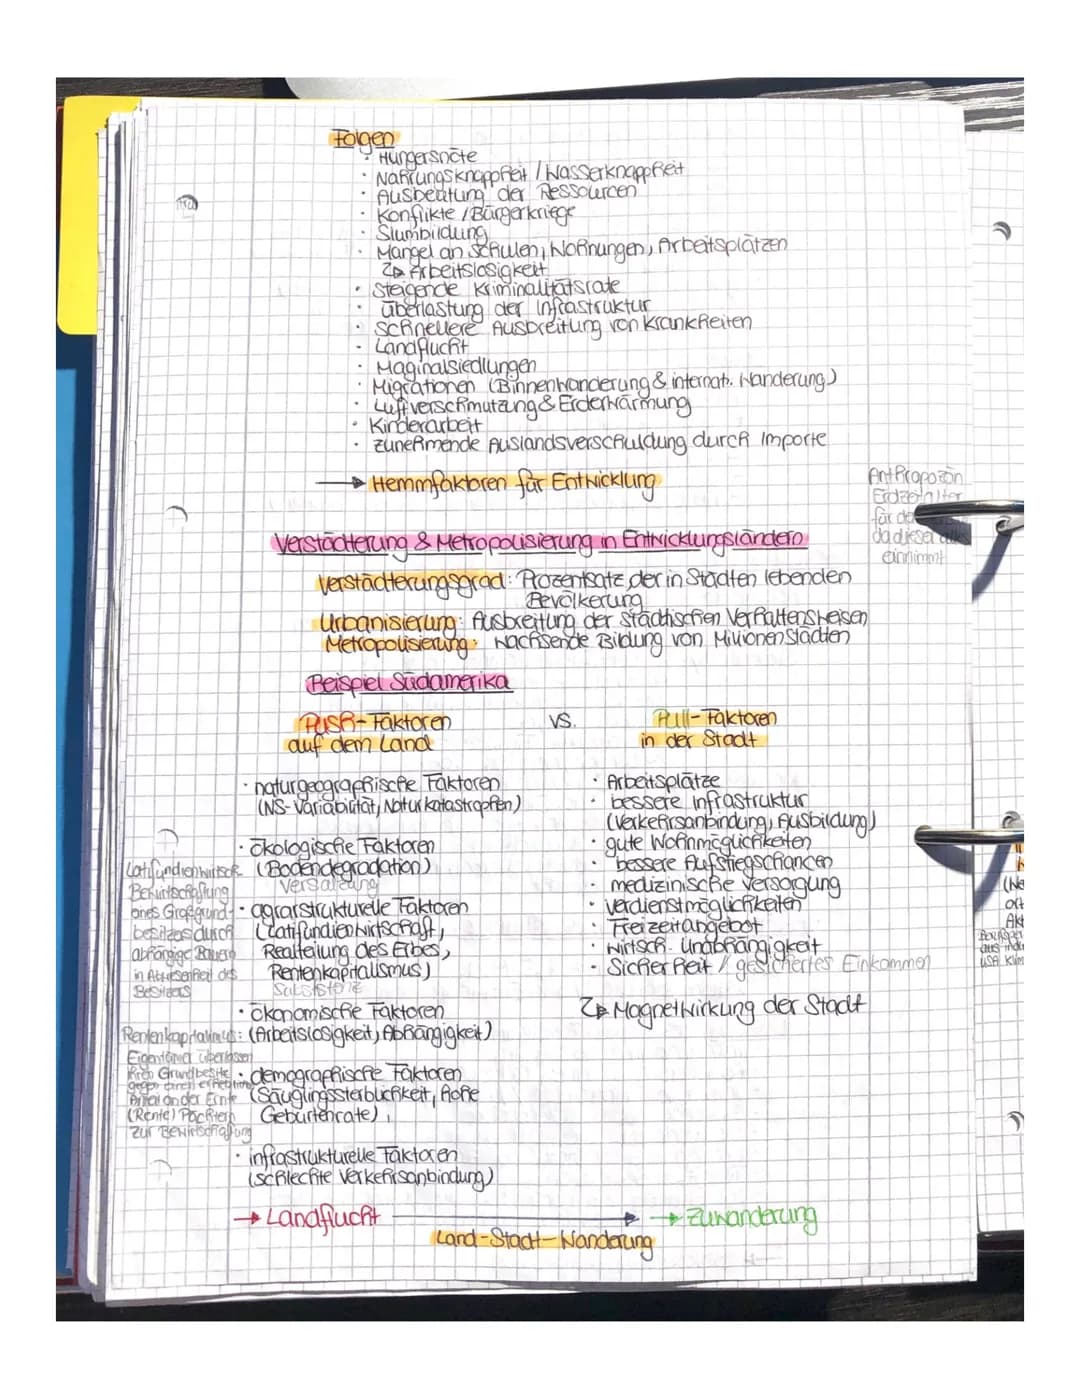 Folgen
· Hungersnöte
· Nahrungsknappheit / Wasserknappheit
· Ausbeutung der Ressourcen
· Konflikte / Bürgerkriege
· Slumbildung
· Mangel an Schulen, Wohnungen, Arbeitsplätzen
↳ Arbeitslosigkeit
· steigende Kriminalitätsrate
· überlastung der Infrastruktur
· schnellere Ausbreitung von Krankheiten
· Landflucht
· Maginalsiedlungen
· Migrationen (Binnenwanderung & internat. Wanderung)
· Luftverschmutzung & Erderwärmung
· Kinderarbeit
· zunehmende Auslandsverschuldung durch Importe
→ Hemmfaktoren für Entwicklung
Anthropozän
Erdzeitalter
für
da dieser alles
einnimmt
Verstädterung & Metropolisierung in Entwicklungsländern
Verstädterungsgrad: Prozentsatz der in Städten lebenden
Bevölkerung
Urbanisierung: Ausbreitung der städtischen Verhaltensweisen
Metropolisierung: wachsende Bildung von Millionenstädten
Beispiel Südamerika
Push-Faktoren vs. Pull-Faktoren
auf dem Land in der Stadt
· naturgeographische Faktoren
(NS-Variabilität, Naturkatastrophen)
· ökologische Faktoren
(Bodendegradation)
Versalzung
· agrarstrukturelle Faktoren
(Latifundienwirtschaft,
Realteilung des Erbes,
Rentenkapitalismus)
Subsistenz
· ökonomische Faktoren
(Arbeitslosigkeit, Abhängigkeit)
· demographische Faktoren
(Säuglingssterblichkeit, hohe
Geburtenrate)
· infrastrukturelle Faktoren
(schlechte Verkehrsanbindung)
Latifundienwirtsch.
Bewirtschaftung
eines Großgrund-
besitzes durch
abhängige Bauern
in Abwesenheit des
Besitzers
Rentenkapitalimus:
Eigentümer überlassen
ihren Grundbesitz
gegen einen erheblichen
Anteil an der Ernte
(Rente) Pächtern
zur Bewirtschaftung
· Arbeitsplätze
· bessere Infrastruktur
(Verkehrsanbindung, Ausbildung)
· gute Wohnmöglichkeiten
· bessere Aufstiegschancen
· medizinische Versorgung
· Verdienstmöglichkeiten
· Freizeitangebot
· wirtsch. Unabhängigkeit
· Sicherheit / gesichertes Einkommen
↳ Magnetwirkung der Stadt
→ Landflucht → → Zuwanderung
Land-Stadt-Wanderung